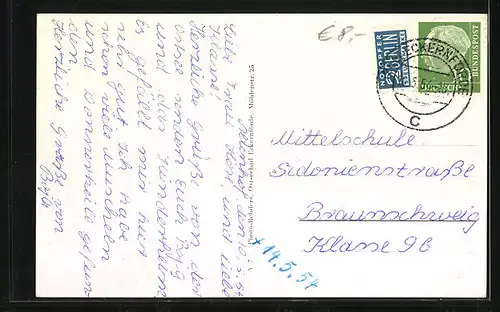 €8,-
NOTOPFER
2 BERLIN
STEUERMARKE
DEUTSCHE BUNDESPOST
ECKERNFÖRDE
C
den 10.5.54
Liebe Frau und liebe
Klasse!
Herzliche Grüße von der
Ostsee senden euch
und das
Es gefällt mir hier
sehr gut. Ich habe
schon viele Muscheln
und Donnerkeile gefun-
den
Herzliche Grüße von
Mühlenstr. 25
+ 14.5.54
Mittelschule
Sidonienstraße
Braunschweig
Klasse 9b